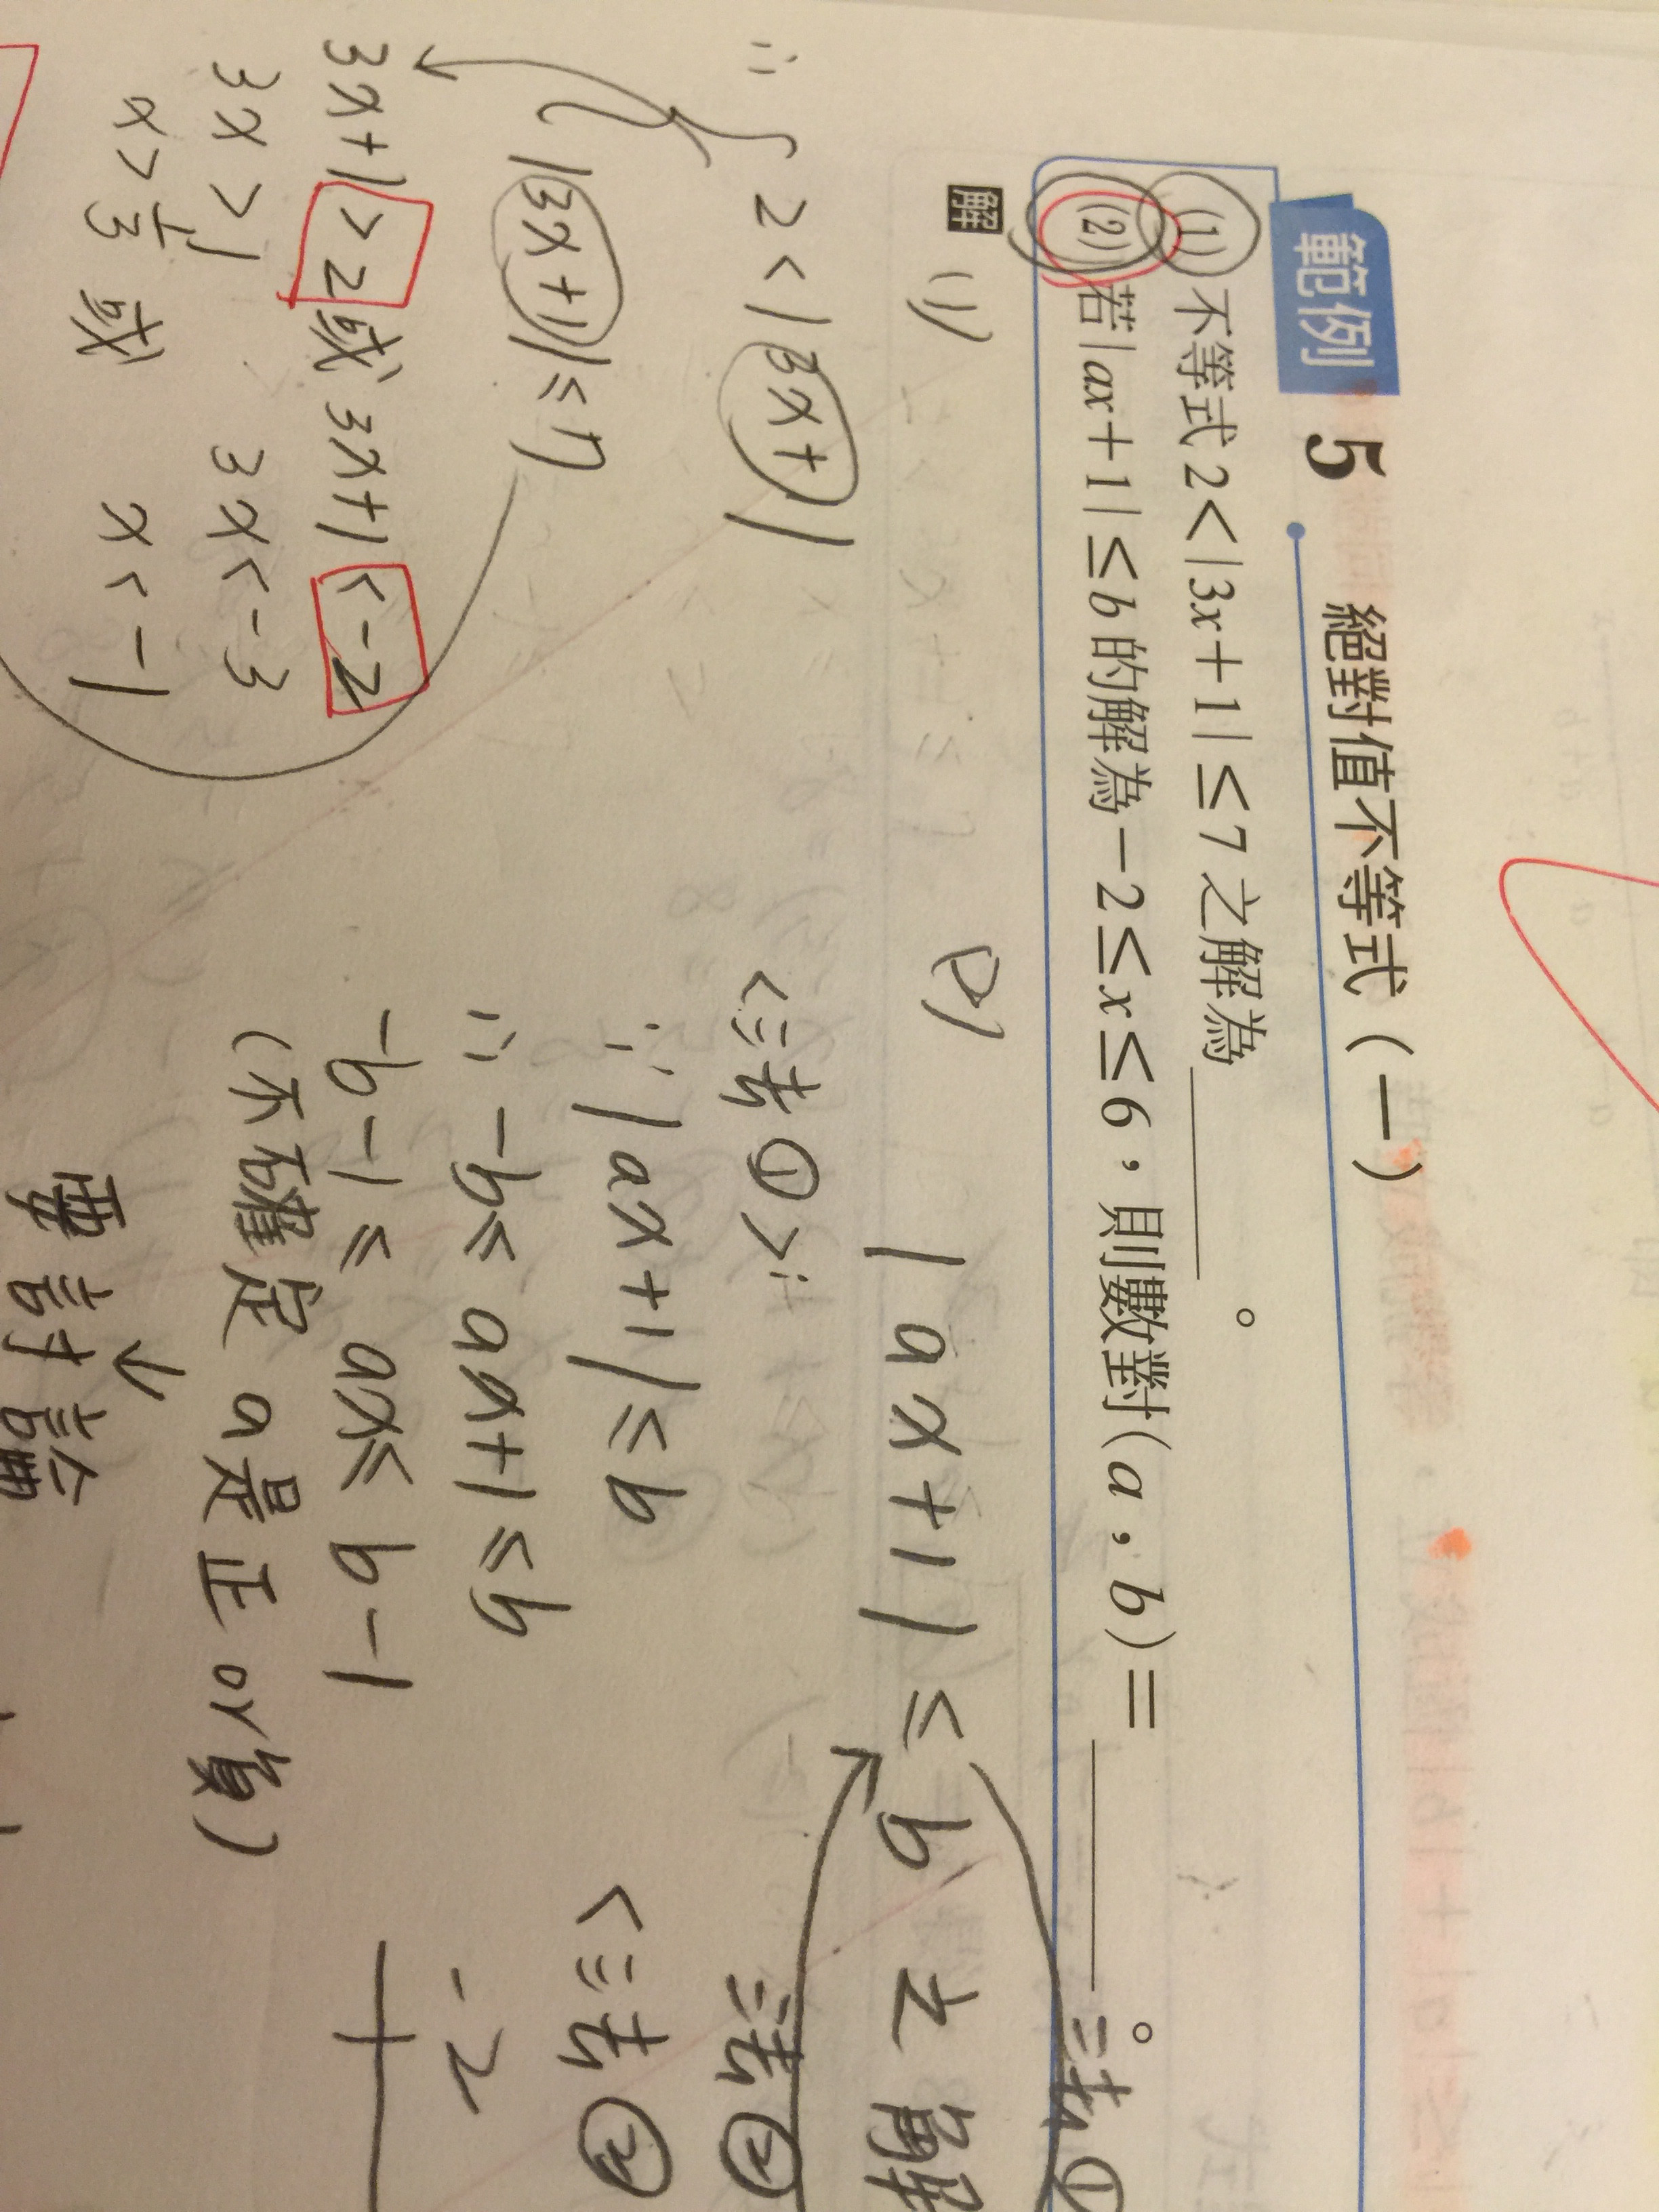 範例 5 絕對值不等式（一）
(1) 不等式 2<|3x+1|≤7 之解為______。
(2) 若|ax+1|≤b 的解為-2≤x≤6，則數對(a，b)=______。
法①
解 (1)
∴ { 2<|3x+1|
|3x+1|≤7
3x+1>2 或 3x+1<-2
3x>1 3x<-3
x>1/3 或 x<-1
(2) |ax+1|≤b 之解
法②
<法①>:
∵|ax+1|≤b
∴ -b≤ax+1≤b
-b-1≤ax≤b-1
(不確定 a是正or負)
↓
要討論
<法②
-2